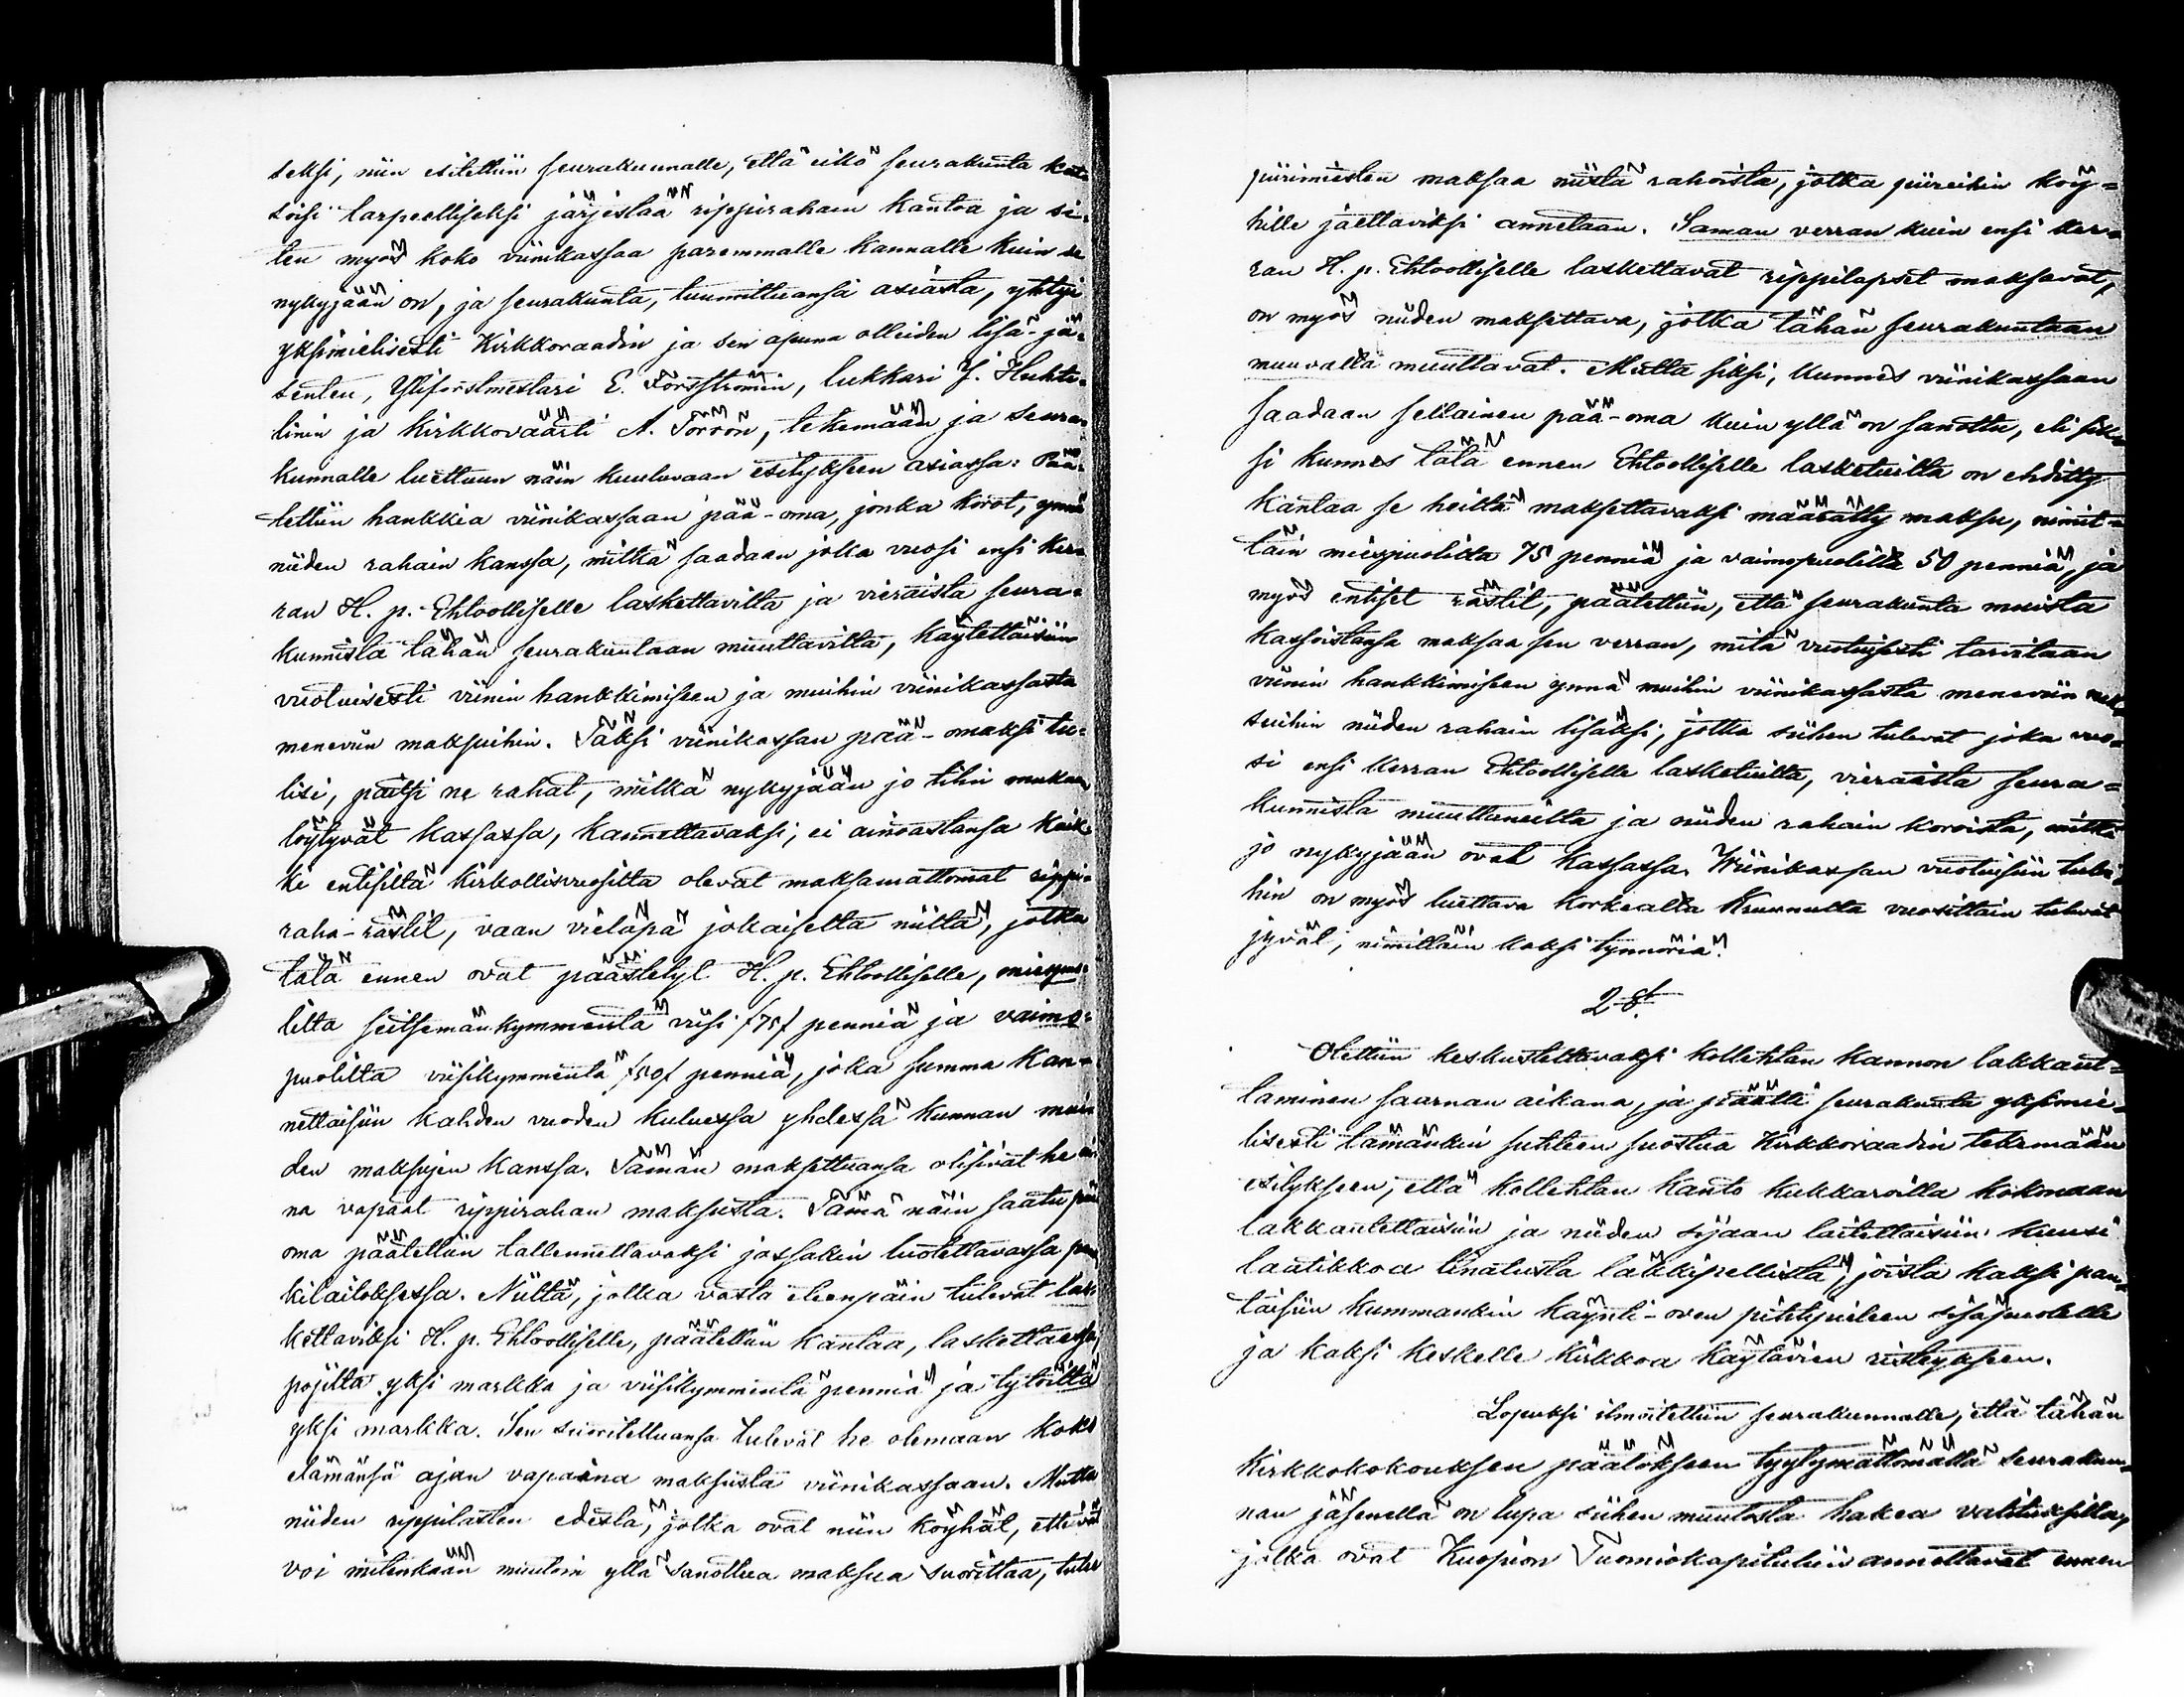 seksi, niin esitettiin seurakunnalle, että eikö seurakunta kat-
soisi tarpeelliseksi järjestää rippirahain kantoa ja si-
ten myös koko viinikassaa paremmalle kannalle kuin se
nykyjään on, ja seurakunta, tuumittuansa asiasta, yhtyi
yksimielisesti Kirkkoraadin ja sen apuna olleiden lisä-jä-
senten, Yliforstmestari E. Forsströmin, lukkari J. Huhti-
linin ja kirkkoväärti A. Törrön, tekemään ja seura-
kunnalle luettuun näin kuuluvaan esitykseen asiassa: Pää-
tettiin hankkia viinikassaan pää-oma, jonka korot, ynnä
niiden rahain kanssa, mitkä saadaan joka vuosi ensi ker-
ran H. p. Ehtoolliselle laskettavilta ja vieraista seura-
kunnista tähän seurakuntaan muuttavilta, käytettäisiin
vuotuisesti viinin hankkimiseen ja muihin viinikassasta
meneviin maksuihin. Täksi viinikassan pää-omaksi tu-
lisi, paitsi ne rahat, mitkä nykyjään jo tilin mukaan
löytyvät kassassa, kannettavaksi, ei ainoastansa kaik-
ki entisiltä kirkollisvuosilta olevat maksamattomat rippi-
raha-rästit, vaan vieläpä jokaiselta niiltä, jotka
tätä ennen ovat päästetyt H. p. Ehtoolliselle, miespuo-
lilta seitsemänkymmentä viisi /75/ penniä ja vaimo-
puolilta viisikymmentä /50/ penniä, joka summa kan-
nettaisiin kahden vuoden kuluessa yhdessä kunnan mui-
den maksujen kanssa. Tämän maksettuansa olisivat he ai-
na vapaat rippirahan maksusta. Tämä näin saatu pää-
oma päätettiin tallennettavaksi jossakin luotettavassa pan-
kilaitoksessa. Niiltä, jotka vasta eteenpäin tulevat las-
kettaviksi H. p. Ehtoolliselle, päätettiin kantaa, laskettaessa,
pojilta yksi markka ja viisikymmentä penniä ja tytöiltä
yksi markka. Sen suoritettuansa tulevat he olemaan koko
elämänsä ajan vapaina maksusta viinikassaan. Mutta
niiden rippilasten edestä, jotka ovat niin köyhät, ettivät
voi mitenkään muutoin yllä sanottua maksua suorittaa, tulee
piirimiesten maksaa niistä rahoista, jotka piireihin köy-
hille jaettaviksi annetaan. Saman verran kuin ensi ker-
ran H. p. Ehtoolliselle laskettavat rippilapset maksavat,
on myös niiden maksettava, jotka tähän seurakuntaan
muuvalta muuttavat. Mutta siksi, kunnes viinikassaan
saadaan sellainen pää-oma kuin yllä on sanottu, eli sik-
si kunnes tätä ennen Ehtoolliselle lasketuilta on ehditty
kantaa se heiltä maksettavaksi määrätty maksu, nimit-
täin miespuolilta 75 penniä ja vaimopuolilta 50 penniä, ja
myös entiset rästit, päätettiin, että seurakunta muista
kassoistansa maksaa sen verran, mitä vuotuisesti tarvitaan
viinin hankkimiseen ynnä muihin viinikassasta meneviin mak-
suihin niiden rahain lisäksi, jotka siihen tulevat joka vuo-
si ensi kerran Ehtoolliselle lasketuilta, vieraista seura-
kunnista muuttaneilta ja niiden rahain koroista, mitkä
jo nykyjään ovat kassassa. Wiinikassan vuotuisiin tuloi-
hin on myös luettava Korkealta Kruunulta vuosittain tulevat
jyvät, nimittäin kaksi tynnöriä.
2 §.
Otettiin keskusteltavaksi kollehtan kannon lakkaut-
taminen saarnan aikana, ja päätti seurakunta yksimie-
lisesti tämänkin suhteen suostua Kirkkoraadin tekemään
esitykseen, että kollehtan kanto kukkaroilla kokonaan
lakkautettaisiin ja niiden sijaan laitettaisiin kuusi
laatikkoa tinatusta läkkipellistä, joista kaksi pan-
taisiin kummankin käynti-oven pihtipieleen sisäpuolelle
ja kaksi keskelle kirkkoa käytävien risteykseen.
Lopuksi ilmoitettiin seurakunnalle, että tähän
Kirkkokokouksen päätökseen tyytymättömällä seurakun-
nan jäsenellä on lupa siihen muutosta hakea valituksilla,
jotka ovat Kuopion Tuomiokapituliin annettavat ennen